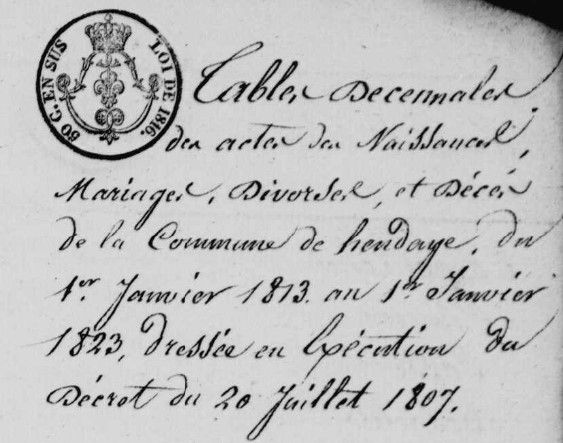 50 C. EN SUS LOI DE 1816.
Tables Decennales
des actes des Naissances,
Mariages, Divorses, et Décés
de la Commune de hendaye, du
1er. Janvier 1813. au 1er Janvier
1823, dressée en Exécution du
Décret du 20 Juillet 1807.